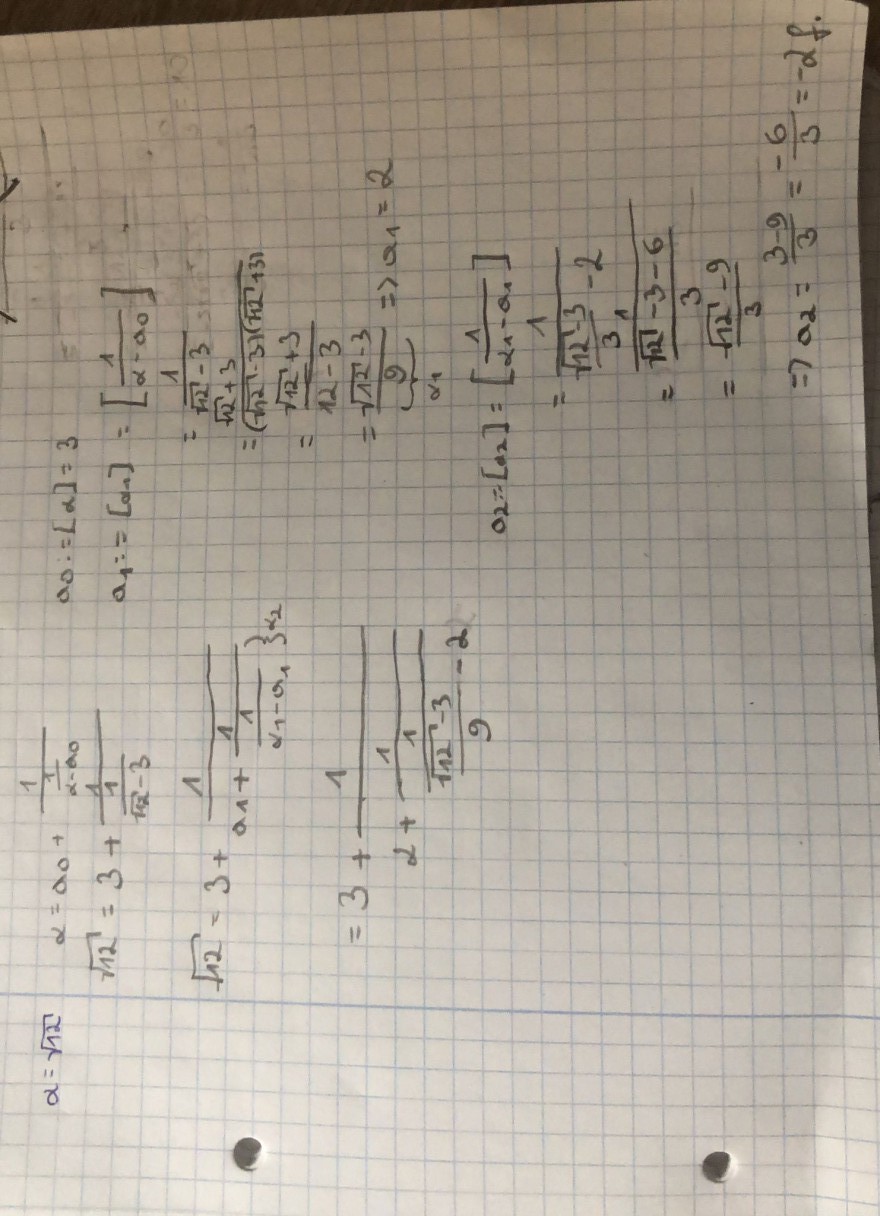 α = √12
α = a0 + 1/(1/(α-a0))
√12 = 3 + 1/(1/(√12-3))
√12 = 3 + 1/(a1 + 1/(1/(α1-a1))) } α2
= 3 + 1/(2 + 1/(1/((√12-3)/9 - 2)))
a0 := [α] = 3
a1 := [α1] = [1/(α-a0)]
= 1/(√12-3)
= (√12+3)/((√12-3)(√12+3))
= (√12+3)/(12-3)
= (√12-3)/9 => a1 = 2
α1
a2 := [α2] = [1/(α1-a1)]
= 1/((√12-3)/3 - 2)
= 1/((√12-3-6)/3)
= 3/(√12-9)
3
=> a2 = (3-9)/3 = -6/3 = -2 f.